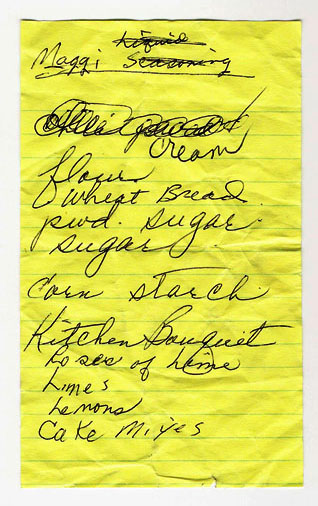 Liquid
Maggi Seasoning
Cream
flour
Wheat Bread
pwd. sugar
sugar
Corn starch
Kitchen Bouquet
Roses of Lime
Limes
Lemons
Cake Mixes